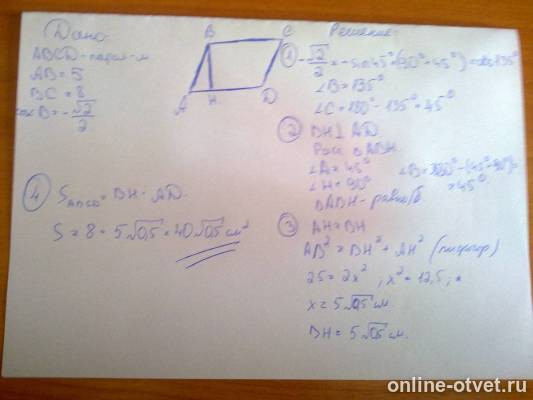 Дано:
ABCD - парал-м
AB = 5
BC = 8
cos B = -√2/2
B C
A H D
Решение:
① -√2/2 = -sin45° (90° + 45°) = cos 135°
∠B = 135°
∠C = 180° - 135° = 45°
② BH ⊥ AD.
Расс. ΔABH.
∠A = 45° ∠B = 180° - (45° + 90°) =
∠H = 90° = 45°
ΔABH - равно/б
③ AH = BH
AB² = BH² + AH² (пифагор)
25 = 2x², x² = 12,5,
x = 5√0,5 см.
BH = 5√0,5 см.
④ S ABCD = BH · AD.
S = 8 · 5√0,5 = 40√0,5 см²
online-otvet.ru